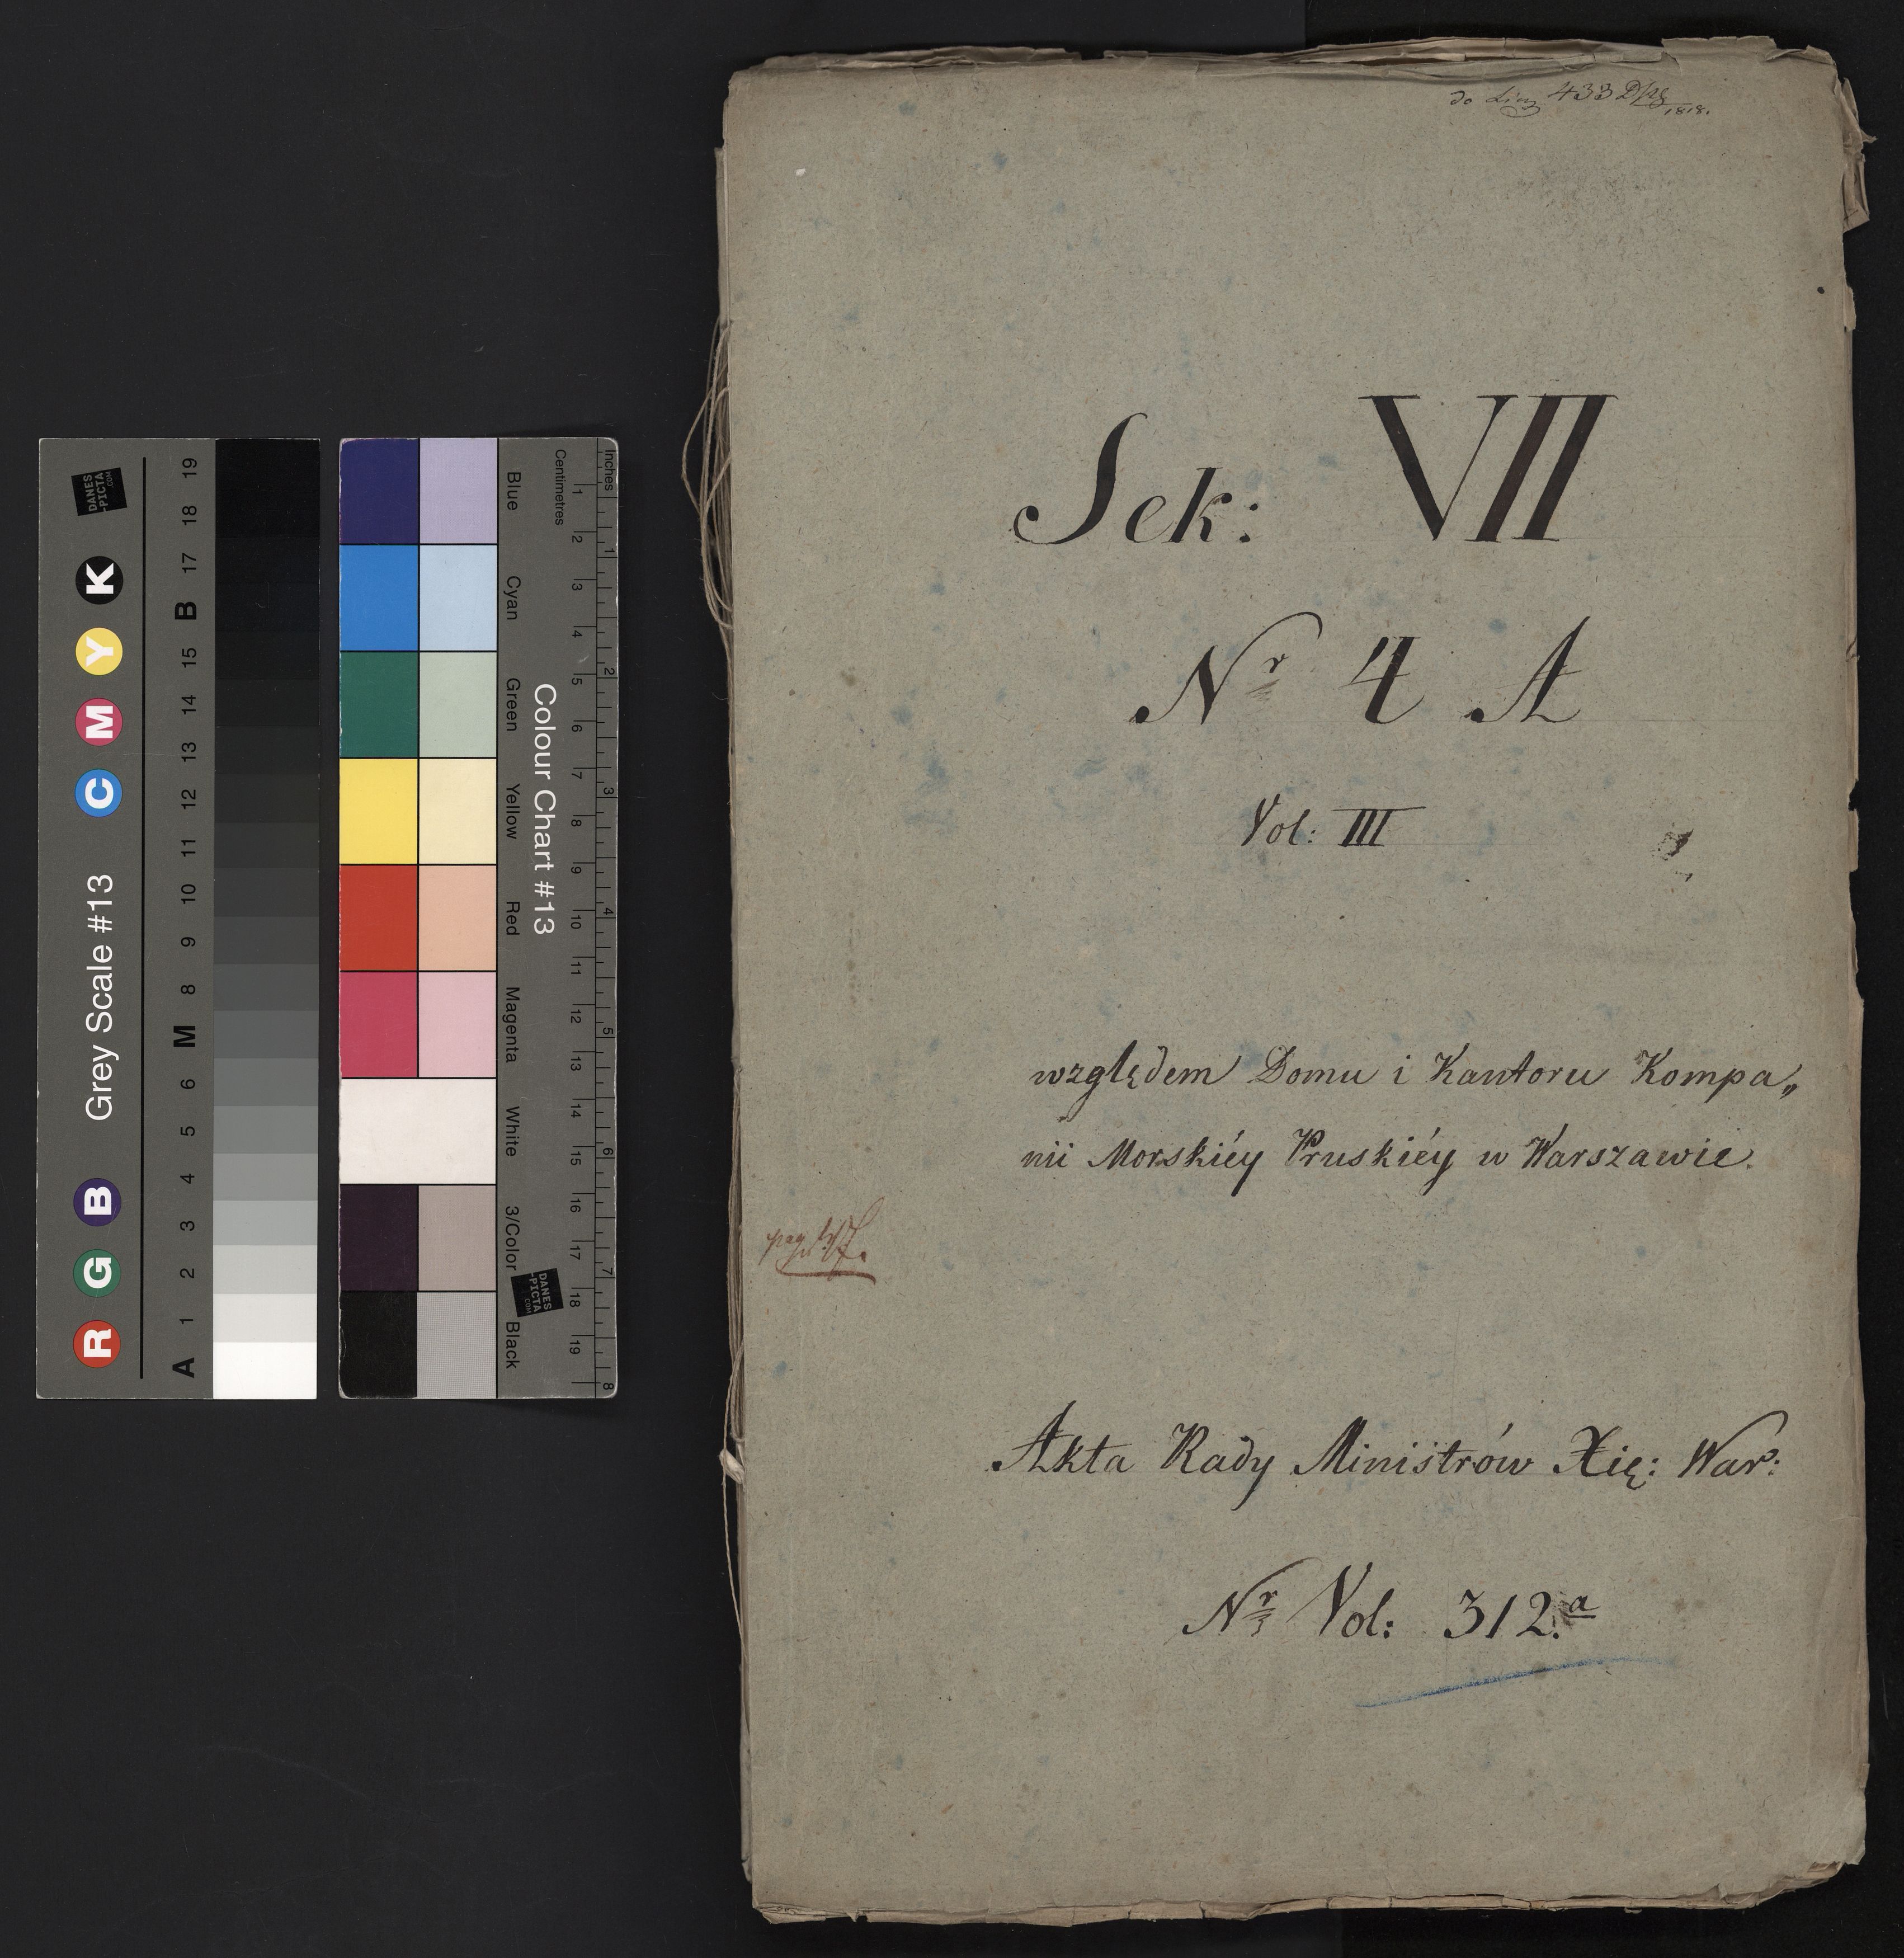 433
1818.
Sek: VII
Nr 4 A
Vol: III
względem Domu i Kantoru Kompa„
nii Morskiéy Pruskiéy w Warszawie.
Akta Rady Ministrów Xię: War:
Nr Vol: 312.a
Grey Scale #13
R G B C M Y K
A 1 2 3 4 5 6 M 8 9 10 11 12 13 14 15 B 17 18 19
DANES
-PICTA
.COM
Colour Chart #13
Blue
Cyan
Green
Yellow
Red
Magenta
White
3/Color
Black
Centimetres
1 2 3 4 5 6 7 8 9 10 11 12 13 14 15 16 17 18 19
Inches
1 2 3 4 5 6 7 8
DANES
-PICTA
.COM